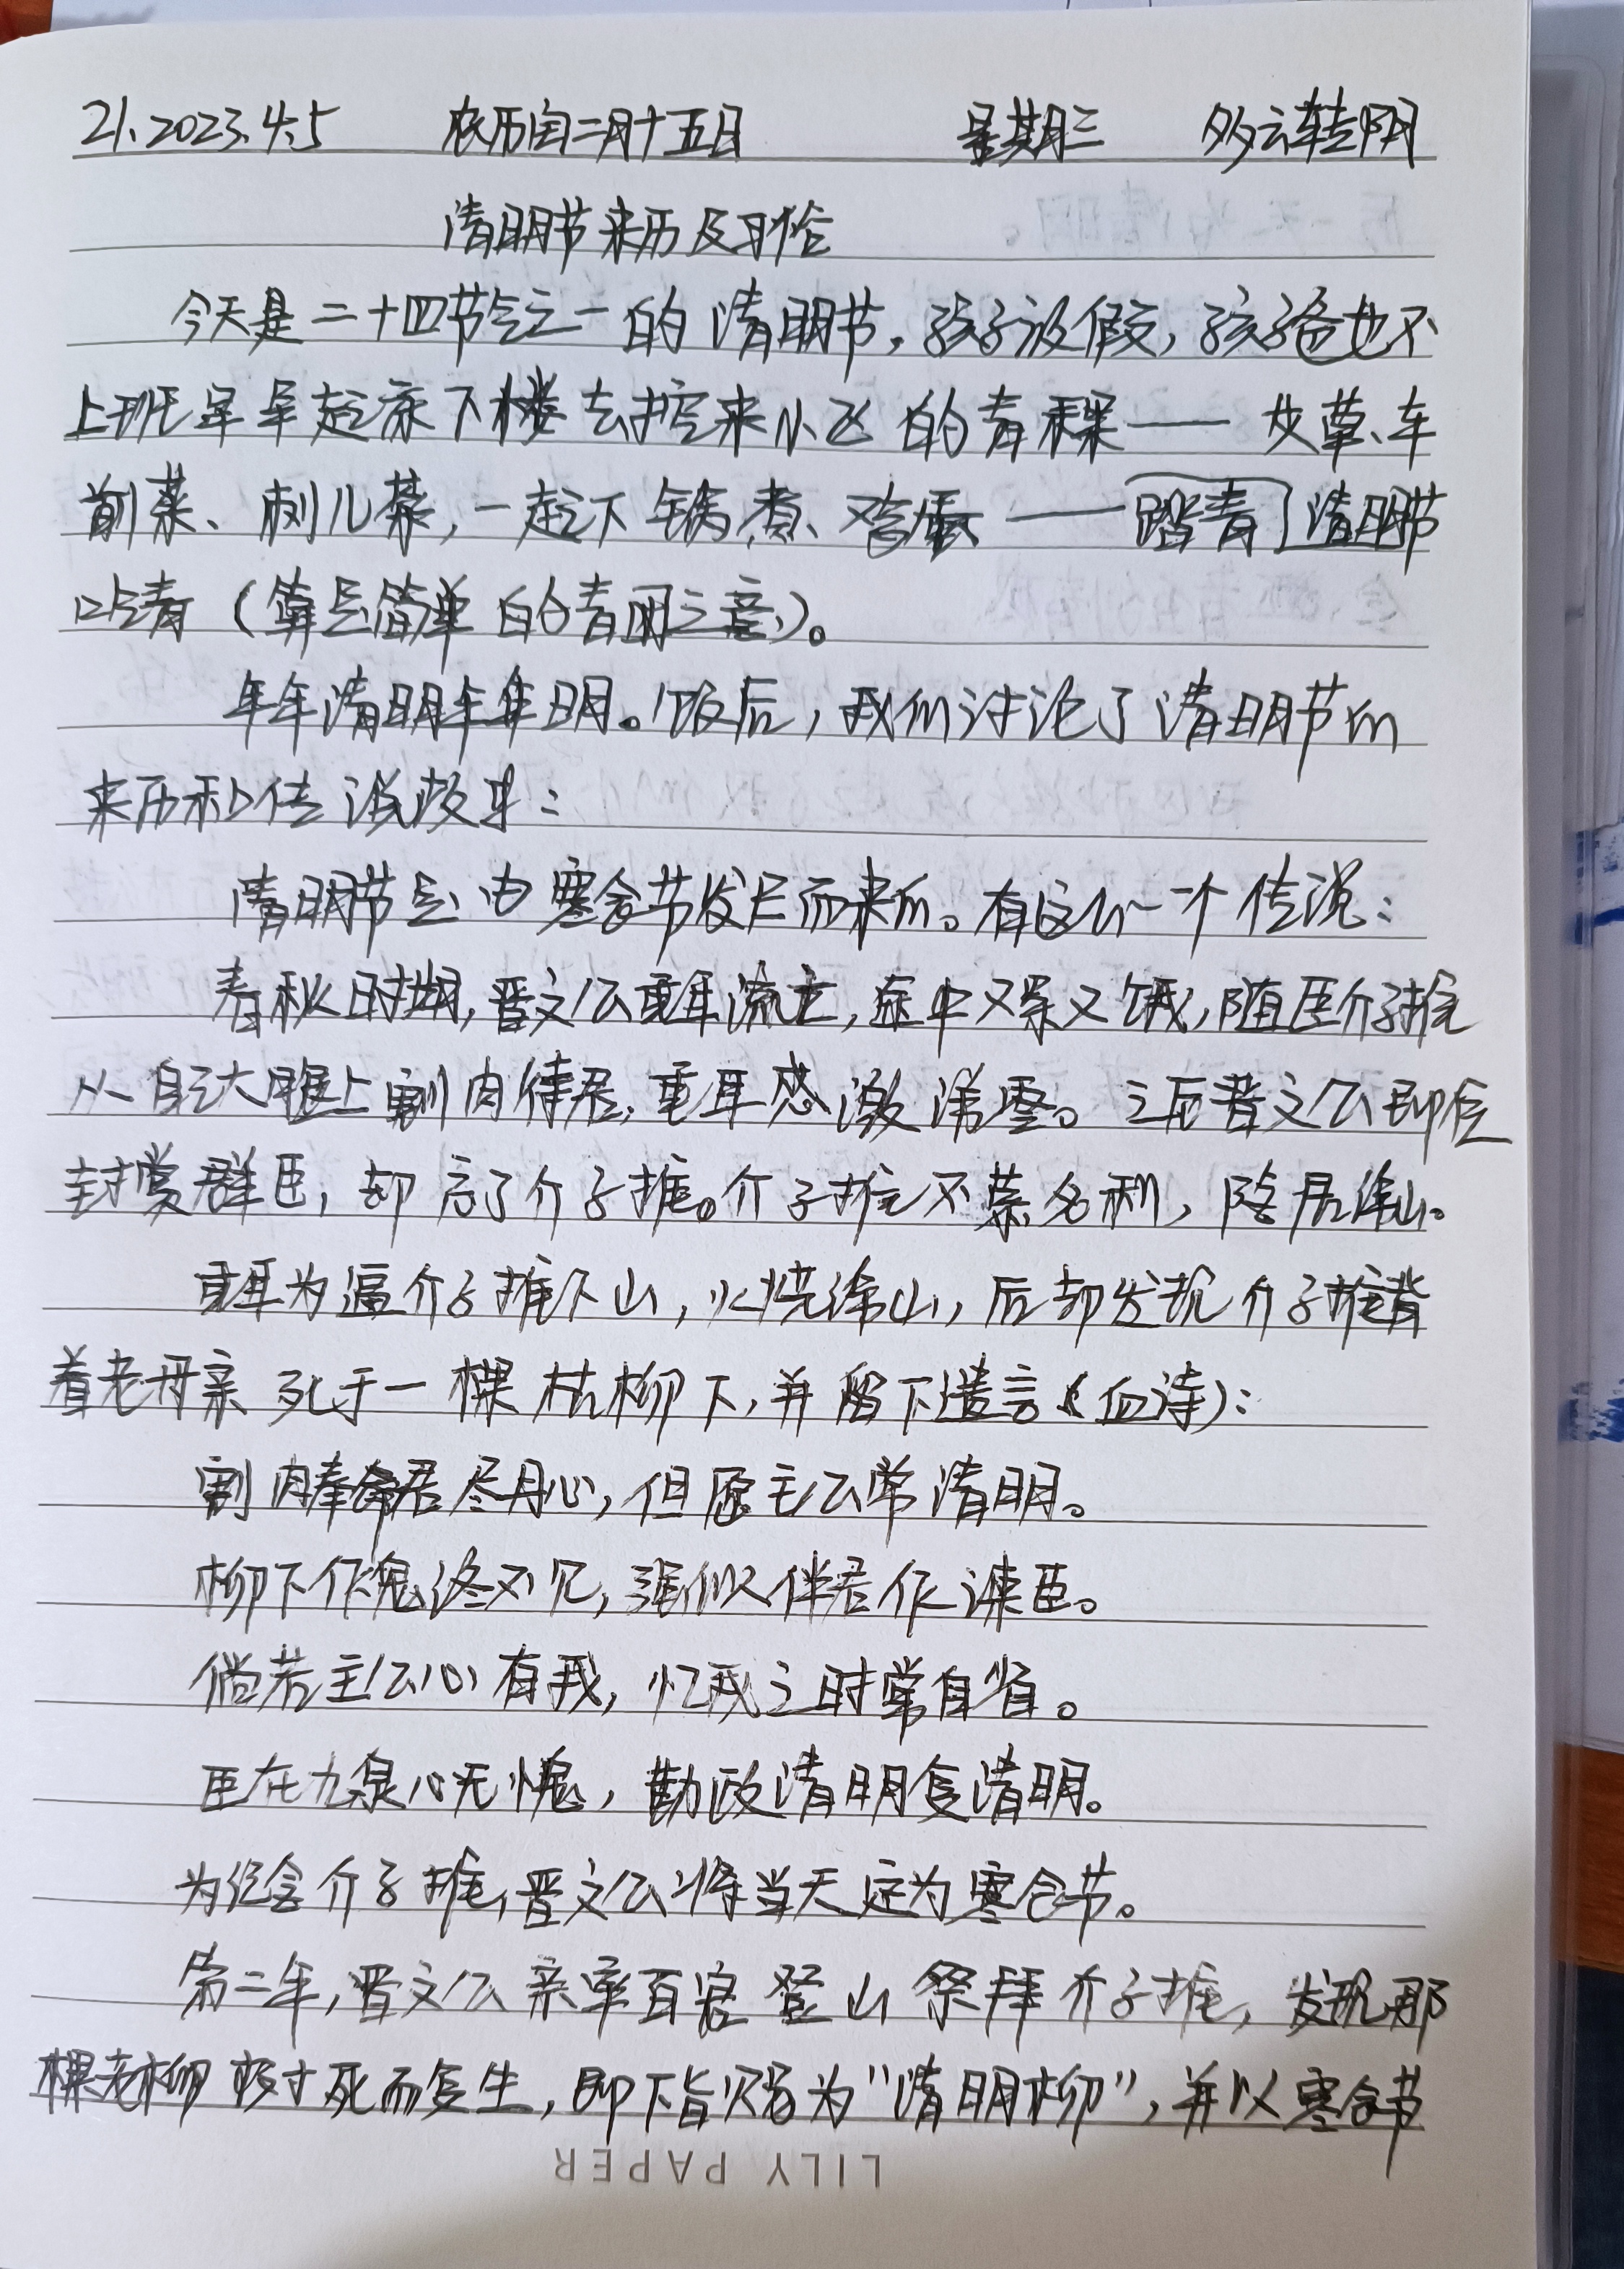 21.2023.4.5 农历闰二月十五日 星期三 多云转阴
清明节来历及习俗
今天是二十四节气之一的清明节，孩子放假，孩爸也不
上班早早起床下楼去挖来小区的青稞——艾草、车
前菜、刺儿菜，一起下锅煮、鸡蛋——踏青了清明节
吃青（算是简单的清明之意）。
年年清明年年明。饭后，我们讨论了清明节的
来历和传说故事：
清明节是由寒食节发展而来的。有这么一个传说：
春秋时期，晋文公重耳流亡，途中又累又饿，随臣介子推
从自己大腿上割肉侍君，重耳感激涕零。之后晋文公即位
封赏群臣，却忘了介子推。介子推不慕名利，隐居绵山。
重耳为逼介子推下山，火烧绵山，后却发现介子推背
着老母亲死于一棵枯柳下，并留下遗言（血诗）：
割肉奉君尽丹心，但愿主公常清明。
柳下作鬼终不见，强似伴君作谏臣。
倘若主公心有我，忆我之时常自省。
臣在九泉心无愧，勤政清明复清明。
为纪念介子推，晋文公将当天定为寒食节。
第二年，晋文公亲率百官登山祭拜介子推，发现那
棵老柳树死而复生，即下旨赐为“清明柳”，并以寒食节
LILY PAPER